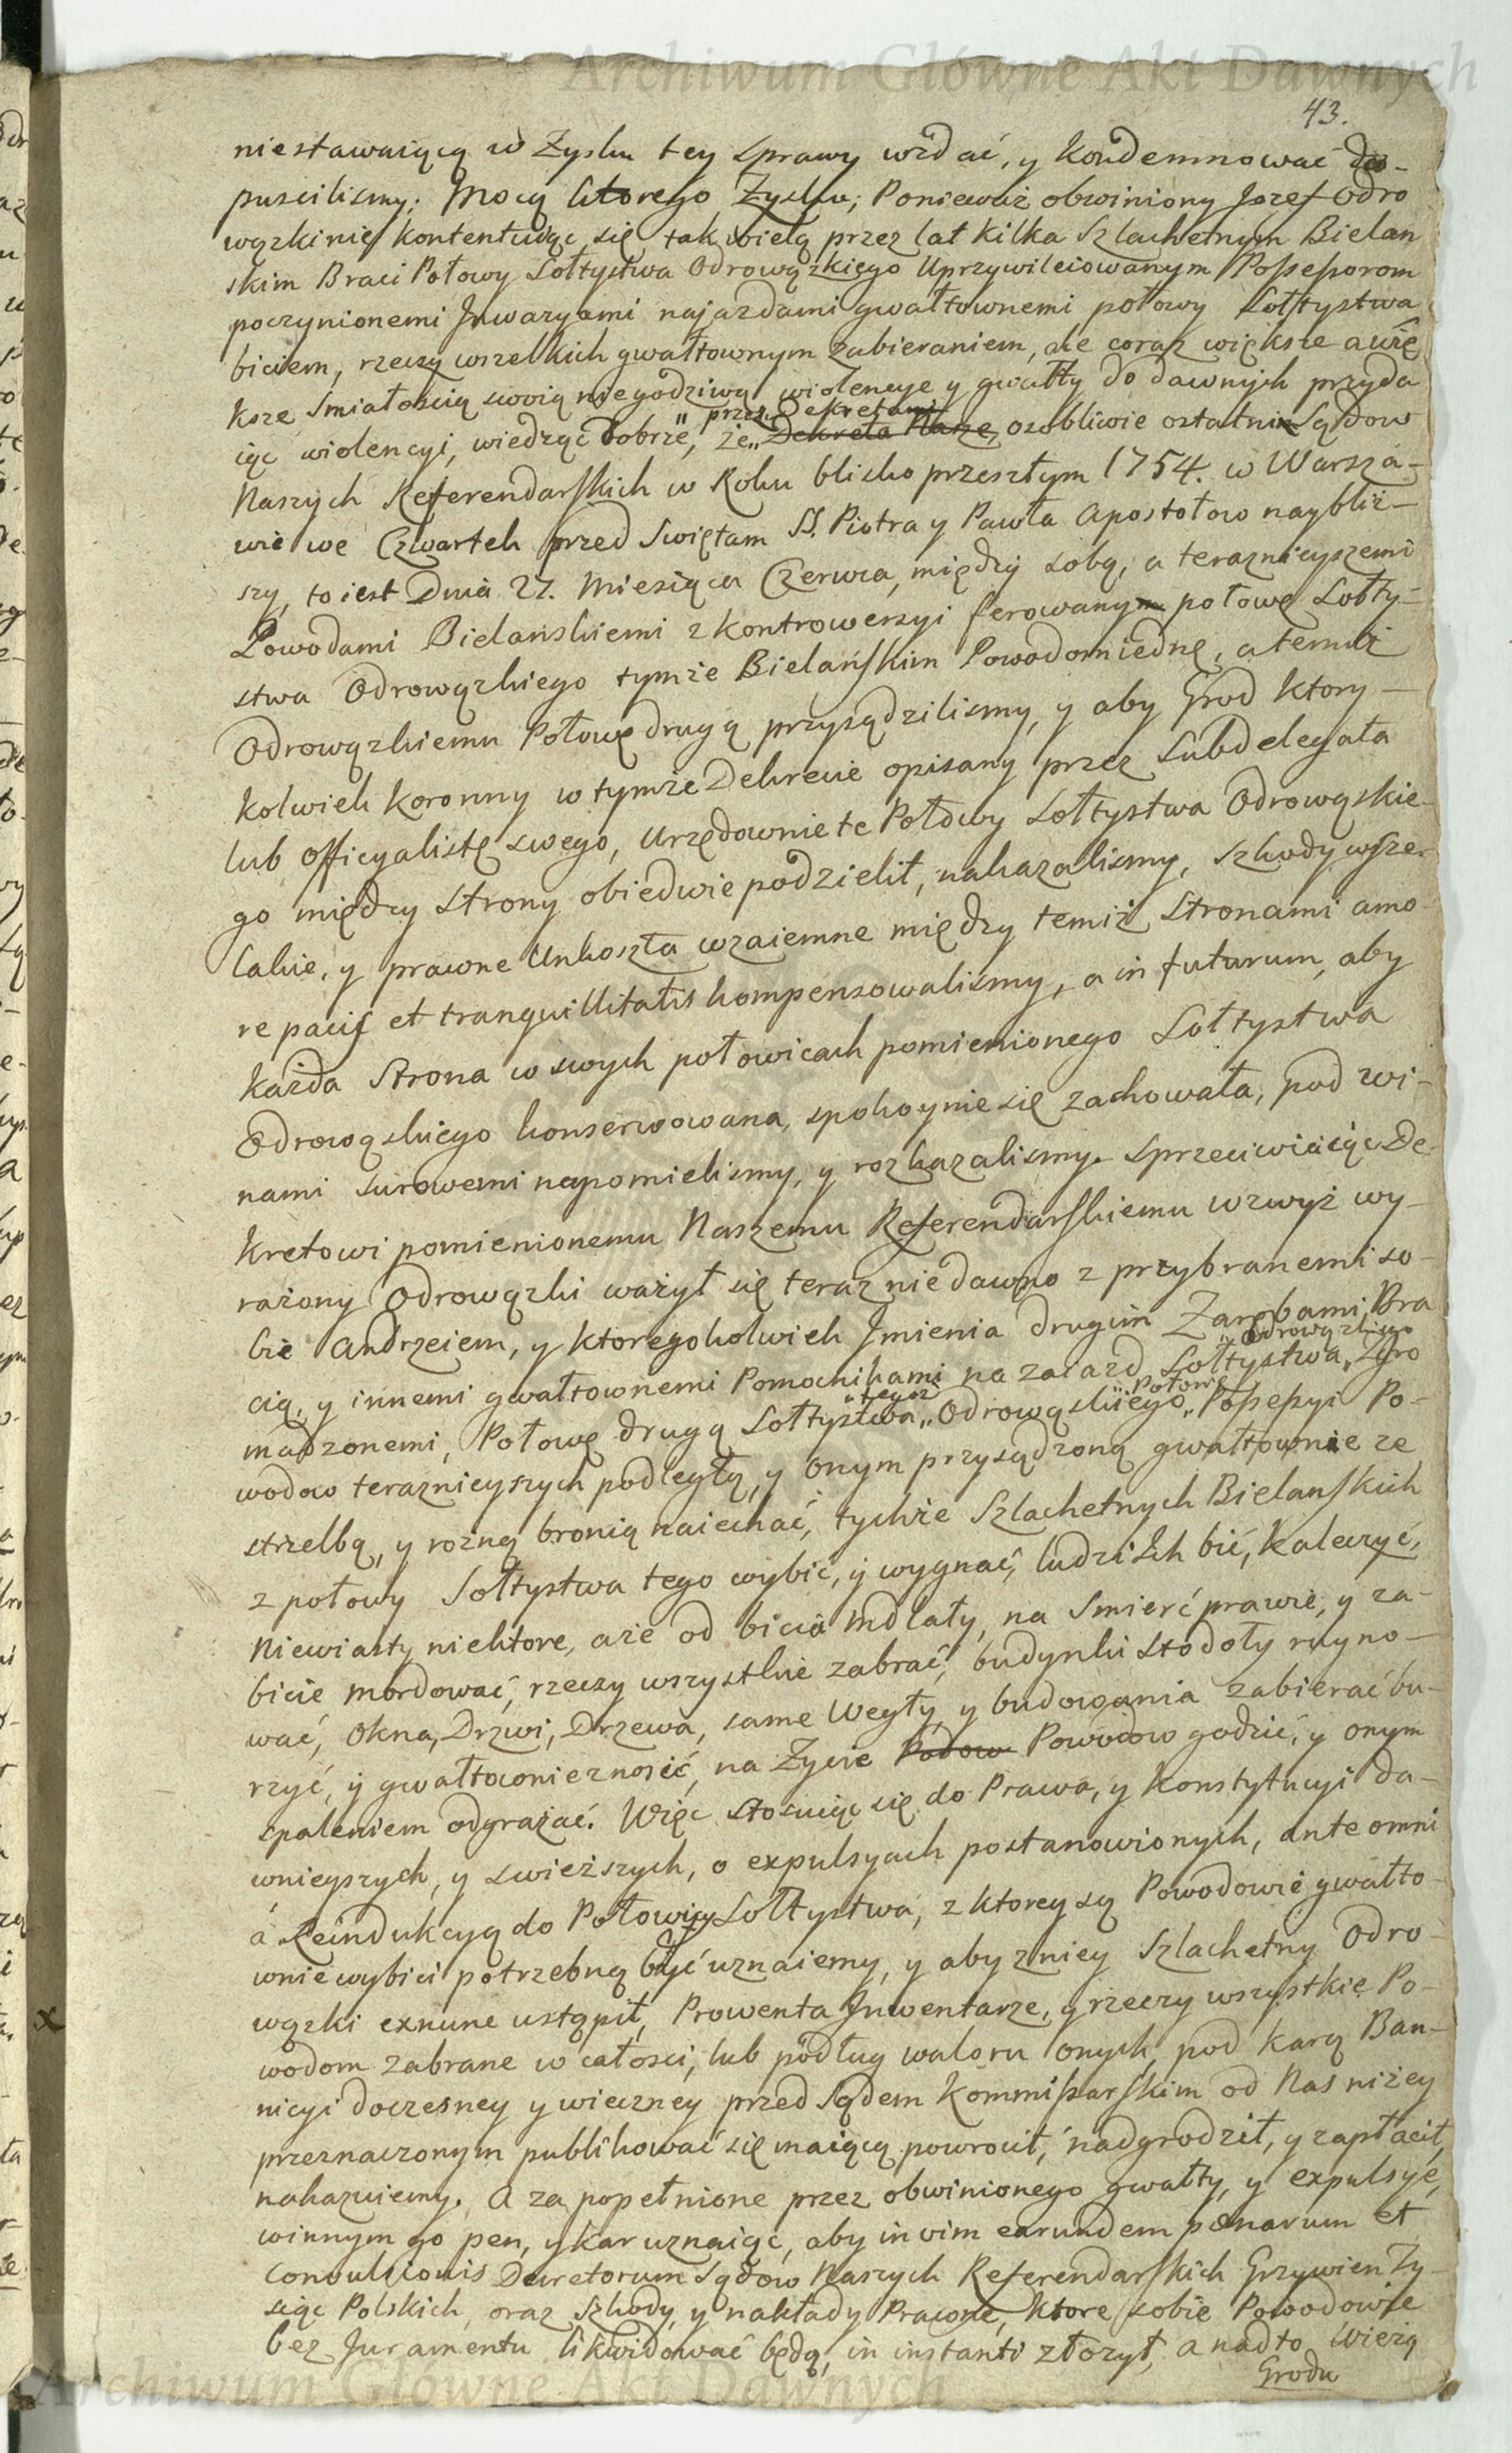 Archiwum Główne Akt Dawnych
43.
niestawaiącą w Zysku tey sprawy wzdać, y kondemnować do-
puscilismy. Mocą ktorego Zysku; Ponieważ obwiniony Jozef Odro
wązki nie kontentuiąc się tak wielą przez lat kilka Szlachetnym Bielan
skim Braci Połowy Sołtystwa Odrowązkiego Uprzywileiowanym Possessorom
poczynionemi Inwazyami najazdami gwałtownemi połowy Sołtystwa
biciem, rzeczy wszelkich gwałtownym zabieraniem, ale coraz większe a wię
ksze smiałoscią swoią niegodziwą wiolencye y gwałty do dawnych przyda
iąc wiolencyi, wiedząc dobrze, że Dekreta Nasze, osobliwie ostatnim Sądow
przez Dekretami
Naszych Referendarskich w Roku blisko przeszłym 1754. w Warsza-
wie we Czwartek przed Swiętam SS. Piotra y Pawła Apostołow naybliż-
szy, to iest Dnia 27. Miesiąca Czerwca, między sobą, a teraznieyszemi
Powodami Bielanskiemi z kontrowersyi ferowanym połowę Sołty-
stwa Odrowązkiego tymże Bielańskim Powodom iednę, a temuż
Odrowązkiemu Połowę drugą przysądzilismy, y aby Grod ktory-
kolwiek koronny w tymże Dekrecie opisany przez Subdelegata
lub Officyalistę swego, Urzędownie te Połowy Sołtystwa Odrowąskie-
go między strony obiedwie podzielił, nakazalismy, Szkody wsze-
lakie, y prawne Unkoszta wzaiemne między temiż Stronami amo
re pacis et tranquillitatis kompensowalismy, a in futurum, aby
każda Strona w swych połowicach pomienionego Sołtystwa
Odrowąskiego konserwowana, spokoynie się zachowała, pod wi-
nami surowemi napomielismy, y rozkazalismy. Sprzeciwiaiąc De-
kretowi pomienionemu Naszemu Referendarskiemu wzwyż wy-
rażony Odrowązki ważył się teraz niedawno z przybranemi so-
bie Andrzeiem, y ktoregokolwiek Imienia drugim Zarębami Bra
cią, y innemi gwałtownemi Pomocnikami na zaiazd Sołtystwa Zgro
Odrowązkiego
madzonemi, Połowę drugą Sołtystwa Odrowąskiego Possessyi Po-
tegoż Połowie
wodow teraznieyszych podległą, y onym przysądzoną gwałtownie ze
strzelbą, y rożną bronią naiechać, tychże Szlachetnych Bielanskich
z połowy Sołtystwa tego wybić, y wygnać, ludzi ich bić, kaleczyć,
Niewiasty niektore, aże od bicia mdlały, na Smierć prawie, y za-
bicie mordować, rzeczy wszystkie zabrać, budynki stodoły ruyno-
wać, Okna, Drzwi, Drzewa, same Węgły, y budowania zabierać bu-
rzyć, y gwałtownie znosić, na Zycie Podow Powodow godzić, y onym
spaleniem odgrażać. Więc stosuiąc się do Prawa, y Konstytucyi da-
wnieyszych, y swieższych, o expulsyach postanowionych, ante omni
a Reindukcyą do Połowicy Sołtystwa, z ktorey są Powodowie gwałto-
wnie wybici potrzebną być uznaiemy, y aby z niey Szlachetny Odro-
wązki exnunc ustąpił, Prowenta Inwentarze, y rzeczy wszystkie Po-
x
wodom zabrane w całosci, lub podług waloru onych, pod karą Ban-
nicyi doczesney y wieczney przed Sądem Kommissarskim od Nas niżey
przeznaczonym publikować się maiącą powrocił, nadgrodził, y zapłacił,
nakazuiemy. A za popełnione przez obwinionego gwałty, y expulsye,
winnym go pen, y kar uznaiąc, aby in vim earundem pœnarum et
convulsionis Decretorum Sądow Naszych Referendarskich Grzywien Ty-
siąc Polskich, oraz Szkody, y nakłady Prawne, ktore sobie Powodowie
bez Juramentu likwidować będą, in instanti złożył, a nadto Wieżą
Grodu
Archiwum Główne Akt Dawnych